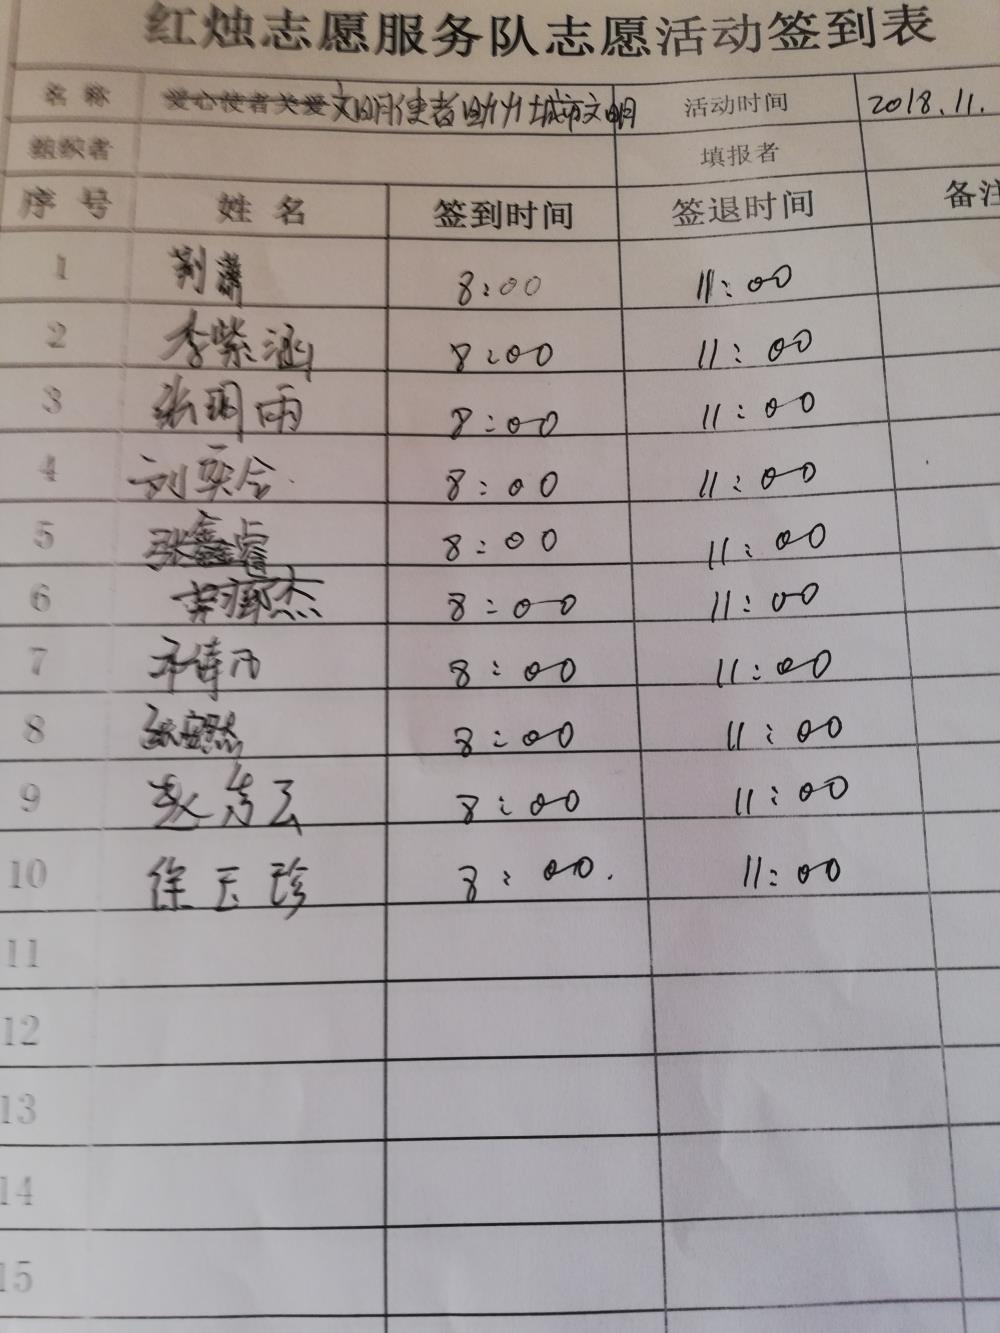 红烛志愿服务队志愿活动签到表
名称 爱心使者关爱文明使者助力城市文明 活动时间 2018.11.
组织者 填报者
序号 姓名 签到时间 签退时间 备注
1 荆潇 8:00 11:00
2 李紫涵 8:00 11:00
3 张玥雨 8:00 11:00
4 刘奕含 8:00 11:00
5 张鑫睿 8:00 11:00
6 8:00 11:00
7 8:00 11:00
8 张安然 8:00 11:00
9 赵 8:00 11:00
10 徐玉珍 8:00. 11:00
11
12
13
14
15